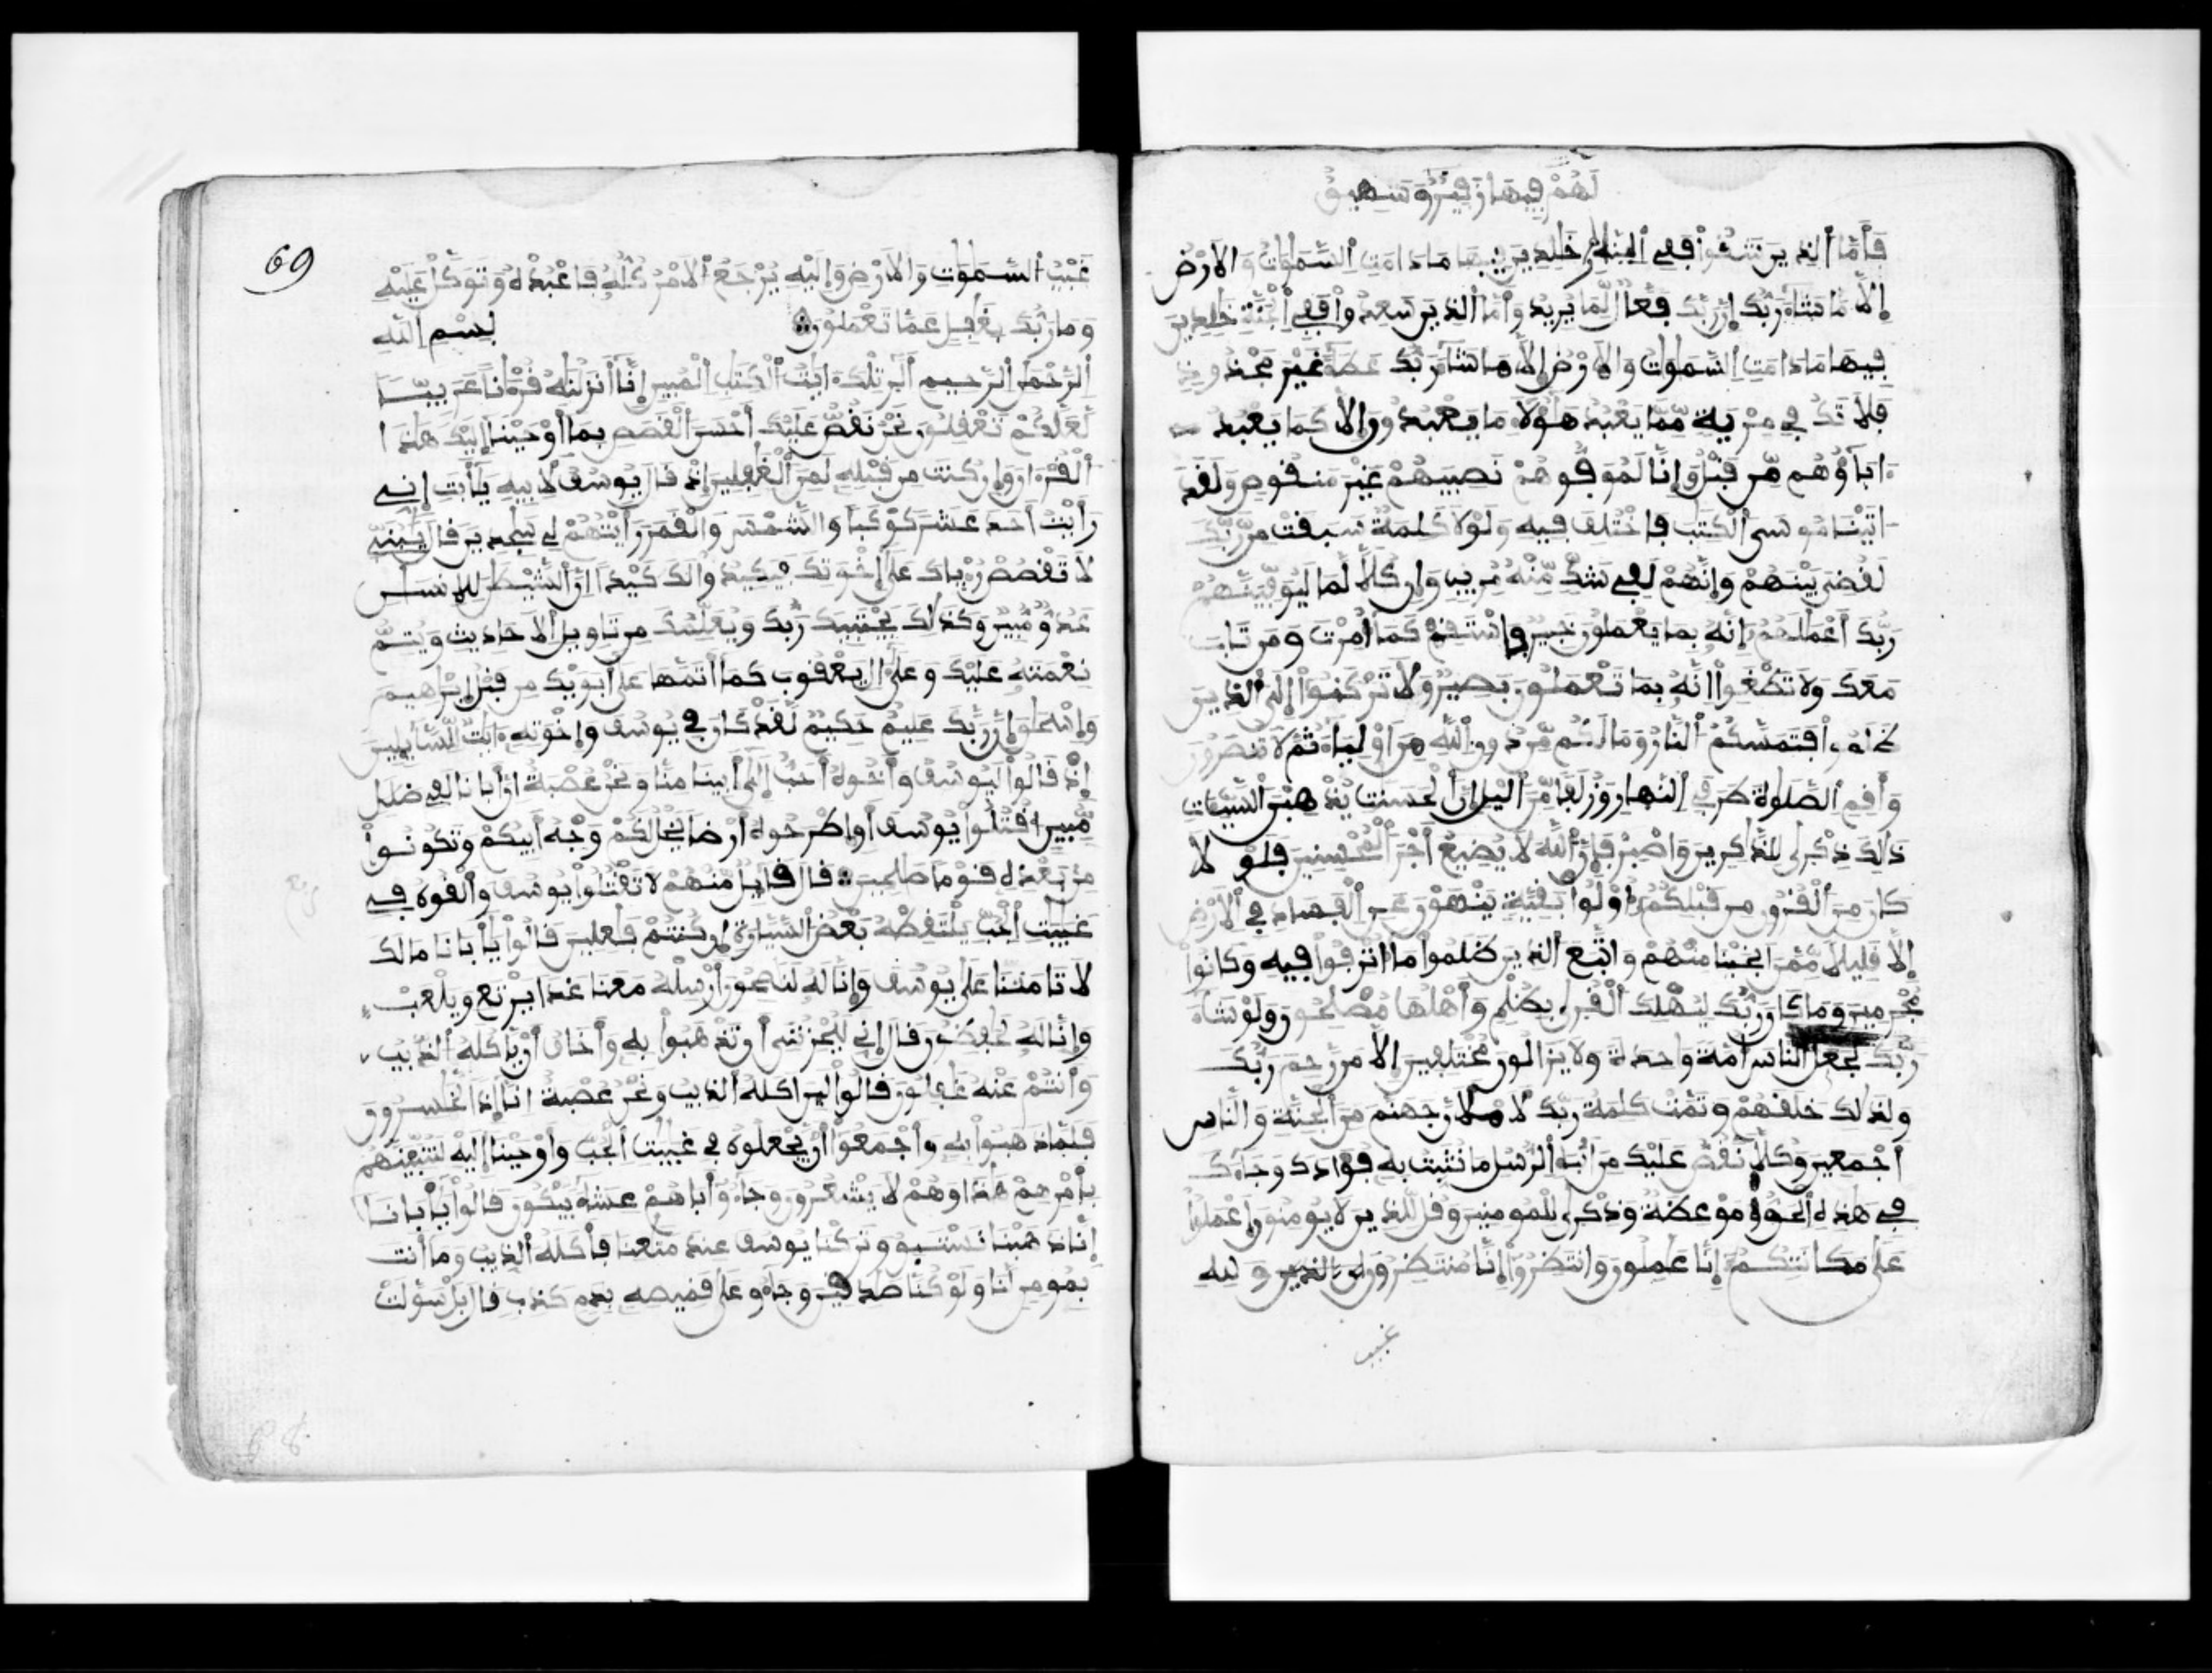 لهم فيها زفير وشهيق
فأما الذين شقوا ففي خلدين فيها ما دامت السموات والارض
إلا ما شاء ربك إن ربك فعال لما يريد وأما الذين سعدوا ففي الجنة خلدين
فيها ما دامت السموات والارض إلا ما شاء ربك عطاء غير مجذوذ
فلا تك في مرية مما يعبد هؤلاء ما يعبدون إلا كما يعبد
ءاباؤهم من قبل وإنا لموفوهم نصيبهم غير منقوص ولقد
اتينا موسى الكتب فاختلف فيه ولولا كلمة سبقت من ربك
لقضي بينهم وإنهم لفي شك منه مريب وإن كلا لما ليوفينهم
ربك أعملهم إنه بما يعملون خبير فاستقم كما أمرت ومن تاب
معك ولا تطغوا انه بما تعملون بصير ولا تركنوا إلى الذين
ظلموا فتمسكم النار وما لكم من دون الله من اولياء ثم لا تنصرون
وأقم الصلوة طرفي النهار وزلفا من اليل إن الحسنت يذهبن السيئات
ذالك ذكرى للذاكرين واصبر فإن الله لا يضيع أجر المحسنين فلولا
كان من القرون من قبلكم أولوا بقية ينهون عن الفساد في الارض
إلا قليلا ممن انجينا منهم واتبع الذين ظلموا ما اترفوا فيه وكانوا
مجرمين وما كان ربك ليهلك القرى بظلم وأهلها مصلحون ولو شاء
ربك لجعل الناس أمة واحدة ولا يزالون مختلفين إلا من رحم ربك
ولذلك خلقهم وتمت كلمة ربك لاملأن جهنم من الجنة والناس
أجمعين وكلا نقص عليك من أنباء الرسل ما نثبت به فؤادك وجاءك
في هذه الحق وموعظة وذكرى للمومنين وقل للذين لا يومنون اعملوا
على مكانتكم إنا عملون وانتظروا إنا منتظرون ولله
غيب
69
غيب السموات والارض وإليه يرجع الامر كله فاعبده وتوكل عليه
وما ربك بغفل عما تعملون بسم الله
الرحمن الرحيم ألر تلك ايت الكتب المبين إنا أنزلنه قرءنا عربيا
لعلكم تعقلون نحن نقص عليك أحسن القصص بما أوحينا إليك هذا
القرءان وإن كنت من قبله لمن الغفلين إذ قال يوسف لابيه يأبت إني
رأيت احد عشر كوكبا والشمس والقمر رأيتهم لي سجدين قال يبني
لا تقصص رءياك على إخوتك فيكيدوا لك كيدا إن الشيطن للانسن
عدو مبين وكذلك يجتبيك ربك ويعلمك من تاويل الاحاديث ويتم
نعمته عليك وعلى ال يعقوب كما أتمها على أبويك من قبل إبرهيم
وإسحق إن ربك عليم حكيم لقد كان في يوسف وإخوته ءايت للسايلين
إذ قالوا ليوسف وأخوه أحب إلى أبينا منا ونحن عصبة إن أبانا لفي ضلل
مبين اقتلوا يوسف أو اطرحوه أرضا يخل لكم وجه أبيكم وتكونوا
من بعده قوما صلحين قال قايل منهم لا تقتلوا يوسف وألقوه في
غيبت الجب يلتقطه بعض السيارة إن كنتم فعلين قالوا يأبانا مالك
لا تامننا على يوسف وإنا له لنصحون أرسله معنا غدا يرتع ويلعب
وإنا له لحفظون قال إني ليحزنني أن تذهبوا به وأخاف أن ياكله الذيب
وأنتم عنه غفلون قالوا لين اكله الذيب ونحن عصبة انا إذا لخسرون
فلما ذهبوا به وأجمعوا أن يجعلوه في غيبت الجب وأوحينا إليه لتنبئنهم
بأمرهم هذا وهم لا يشعرون وجاءو أباهم عشاء يبكون قالوا يأبانا
إنا ذهبنا نستبق وتركنا يوسف عند متعنا فأكله الذيب وما أنت
بمومن لنا ولو كنا صدقين وجاءو على قميصه بدم كذب قال بل سولت